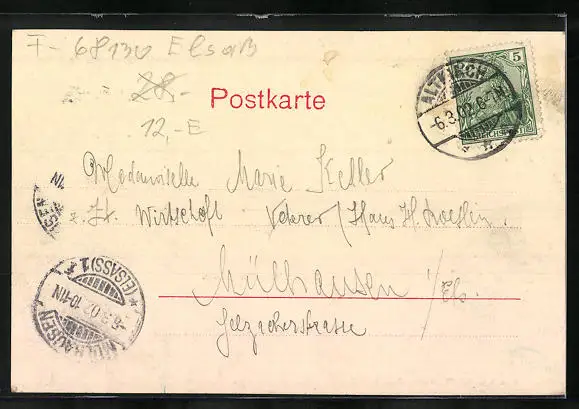 F-68130 Elsaß
28,-
Postkarte
12,-E
5
ALTKIRCH
-6.3.02. 6-7N.
Mademoiselle Marie Keller
z. Zt. Wirtschaft / Haus H.
Mülhausen i/Els.
MÜLHAUSEN
(ELSASS) 1
-6.3.02. 10-11N